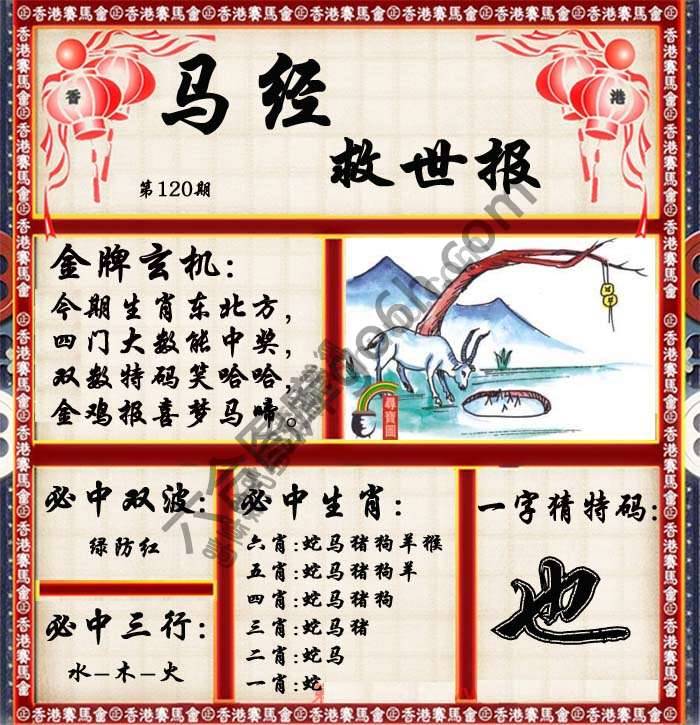 香港賽馬會
香
港
马经
救世报
第120期
金牌玄机:
今期生肖东北方,
四门大数能中奖,
双数特码笑哈哈,
金鸡报喜梦马啼。
尋寶圖
必中双波:
绿防红
必中三行:
水-木-火
必中生肖:
六肖:蛇马猪狗羊猴
五肖:蛇马猪狗羊
四肖:蛇马猪狗
三肖:蛇马猪
二肖:蛇马
一肖:蛇
一字猜特码:
也